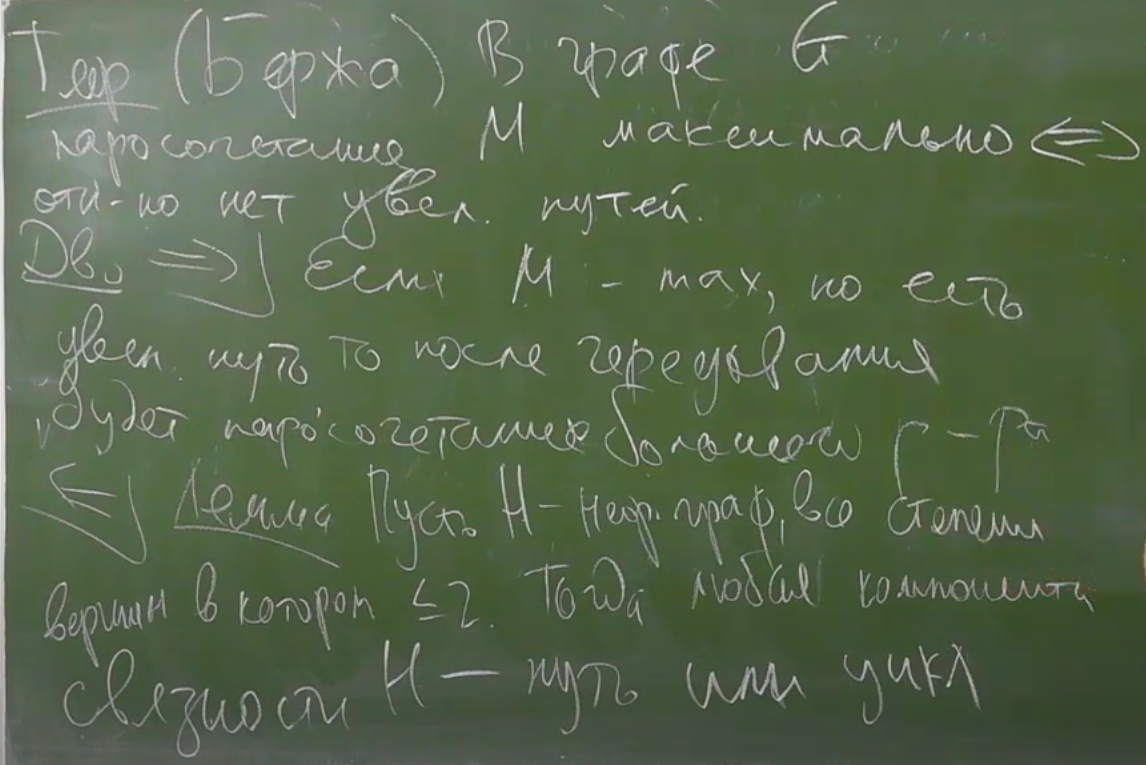 Теор (Бержа) В графе G
паросочетание M максимально ⟺
отн-но нет увел. путей.
Дво ⟹ Если M - max, но есть
увел. путь то после чередования
будет паросочетание большего р-ра
⟸ Лемма Пусть H - неор. граф, все степени
вершин в котором ≤2. Тогда любая компонента
связности H — путь или цикл